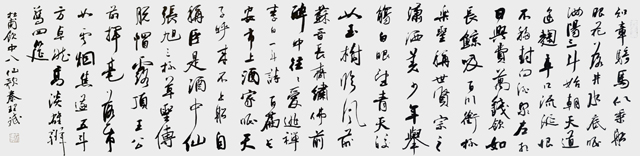 知章騎馬似乘船
眼花落井水底眠
汝陽三斗始朝天道
逢麴車口流涎恨
不移封向酒泉左相
日興費萬錢飲如
長鯨吸百川銜杯
樂聖稱世賢宗之
瀟灑美少年舉
觴白眼望青天皎
如玉樹臨風前
蘇晉長齋繡佛前
醉中往往愛逃禪
李白一斗詩百篇長
安市上酒家眠天
子呼來不上船自
稱臣是酒中仙
張旭三杯草聖傳
脫帽露頂王公
前揮毫落紙
如雲煙焦遂五斗
方卓然高談雄辯
驚四筵
杜甫飲中八仙歌